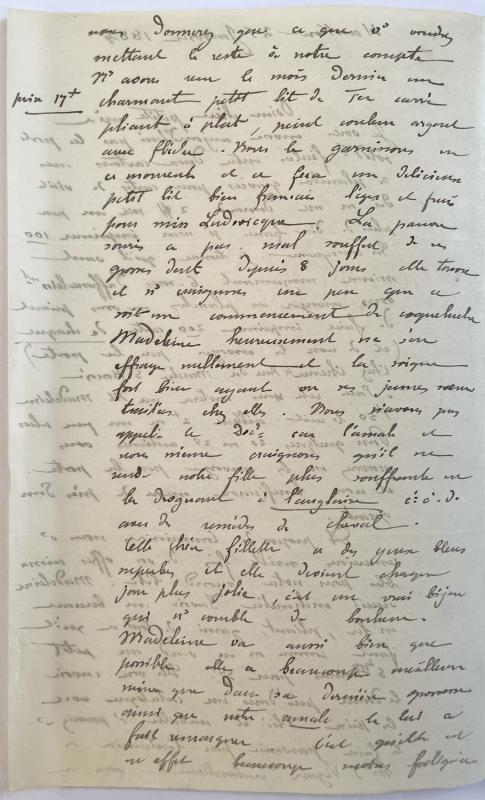 nous donnerez que ce que vs voudrez
mettant le reste à notre compte
Ns avons reçu le mois dernier un
prix 17+ charmant petit lit de fer carré
pliant à plat, peint couleur argent
avec flèche. Nous le garnissons en
ce moment et ce sera un délicieux
petit lit bien français léger et frais
pour miss Ludovicque. La pauvre
souris a pas mal souffert de ses
grosses dents depuis 8 jours elle tousse
et ns craignons un peu que ce
soit un commencement de coqueluche
Madeleine heureusement ne s'en
effraye nullement et la soigne
fort bien ayant vu ses jeunes sœurs
traitées chez elles. Nous n'avons pas
appelé le Doc: car l'amale et
nous même craignons qu'il ne
rende notre fille plus souffrante en
la droguant à l'anglaise c. à. d.
avec des remèdes de cheval.
Cette chère fillette a des yeux bleus
superbes et elle devient chaque
jour plus jolie, c'est un vrai bijou
qui ns comble de bonheur.
Madeleine va aussi bien que
possible elle a beaucoup meilleure
mine que dans sa dernière grossesse
ainsi que notre amale le lui a
fait remarquer. C'est qu'elle est
en effet beaucoup moins fatiguée